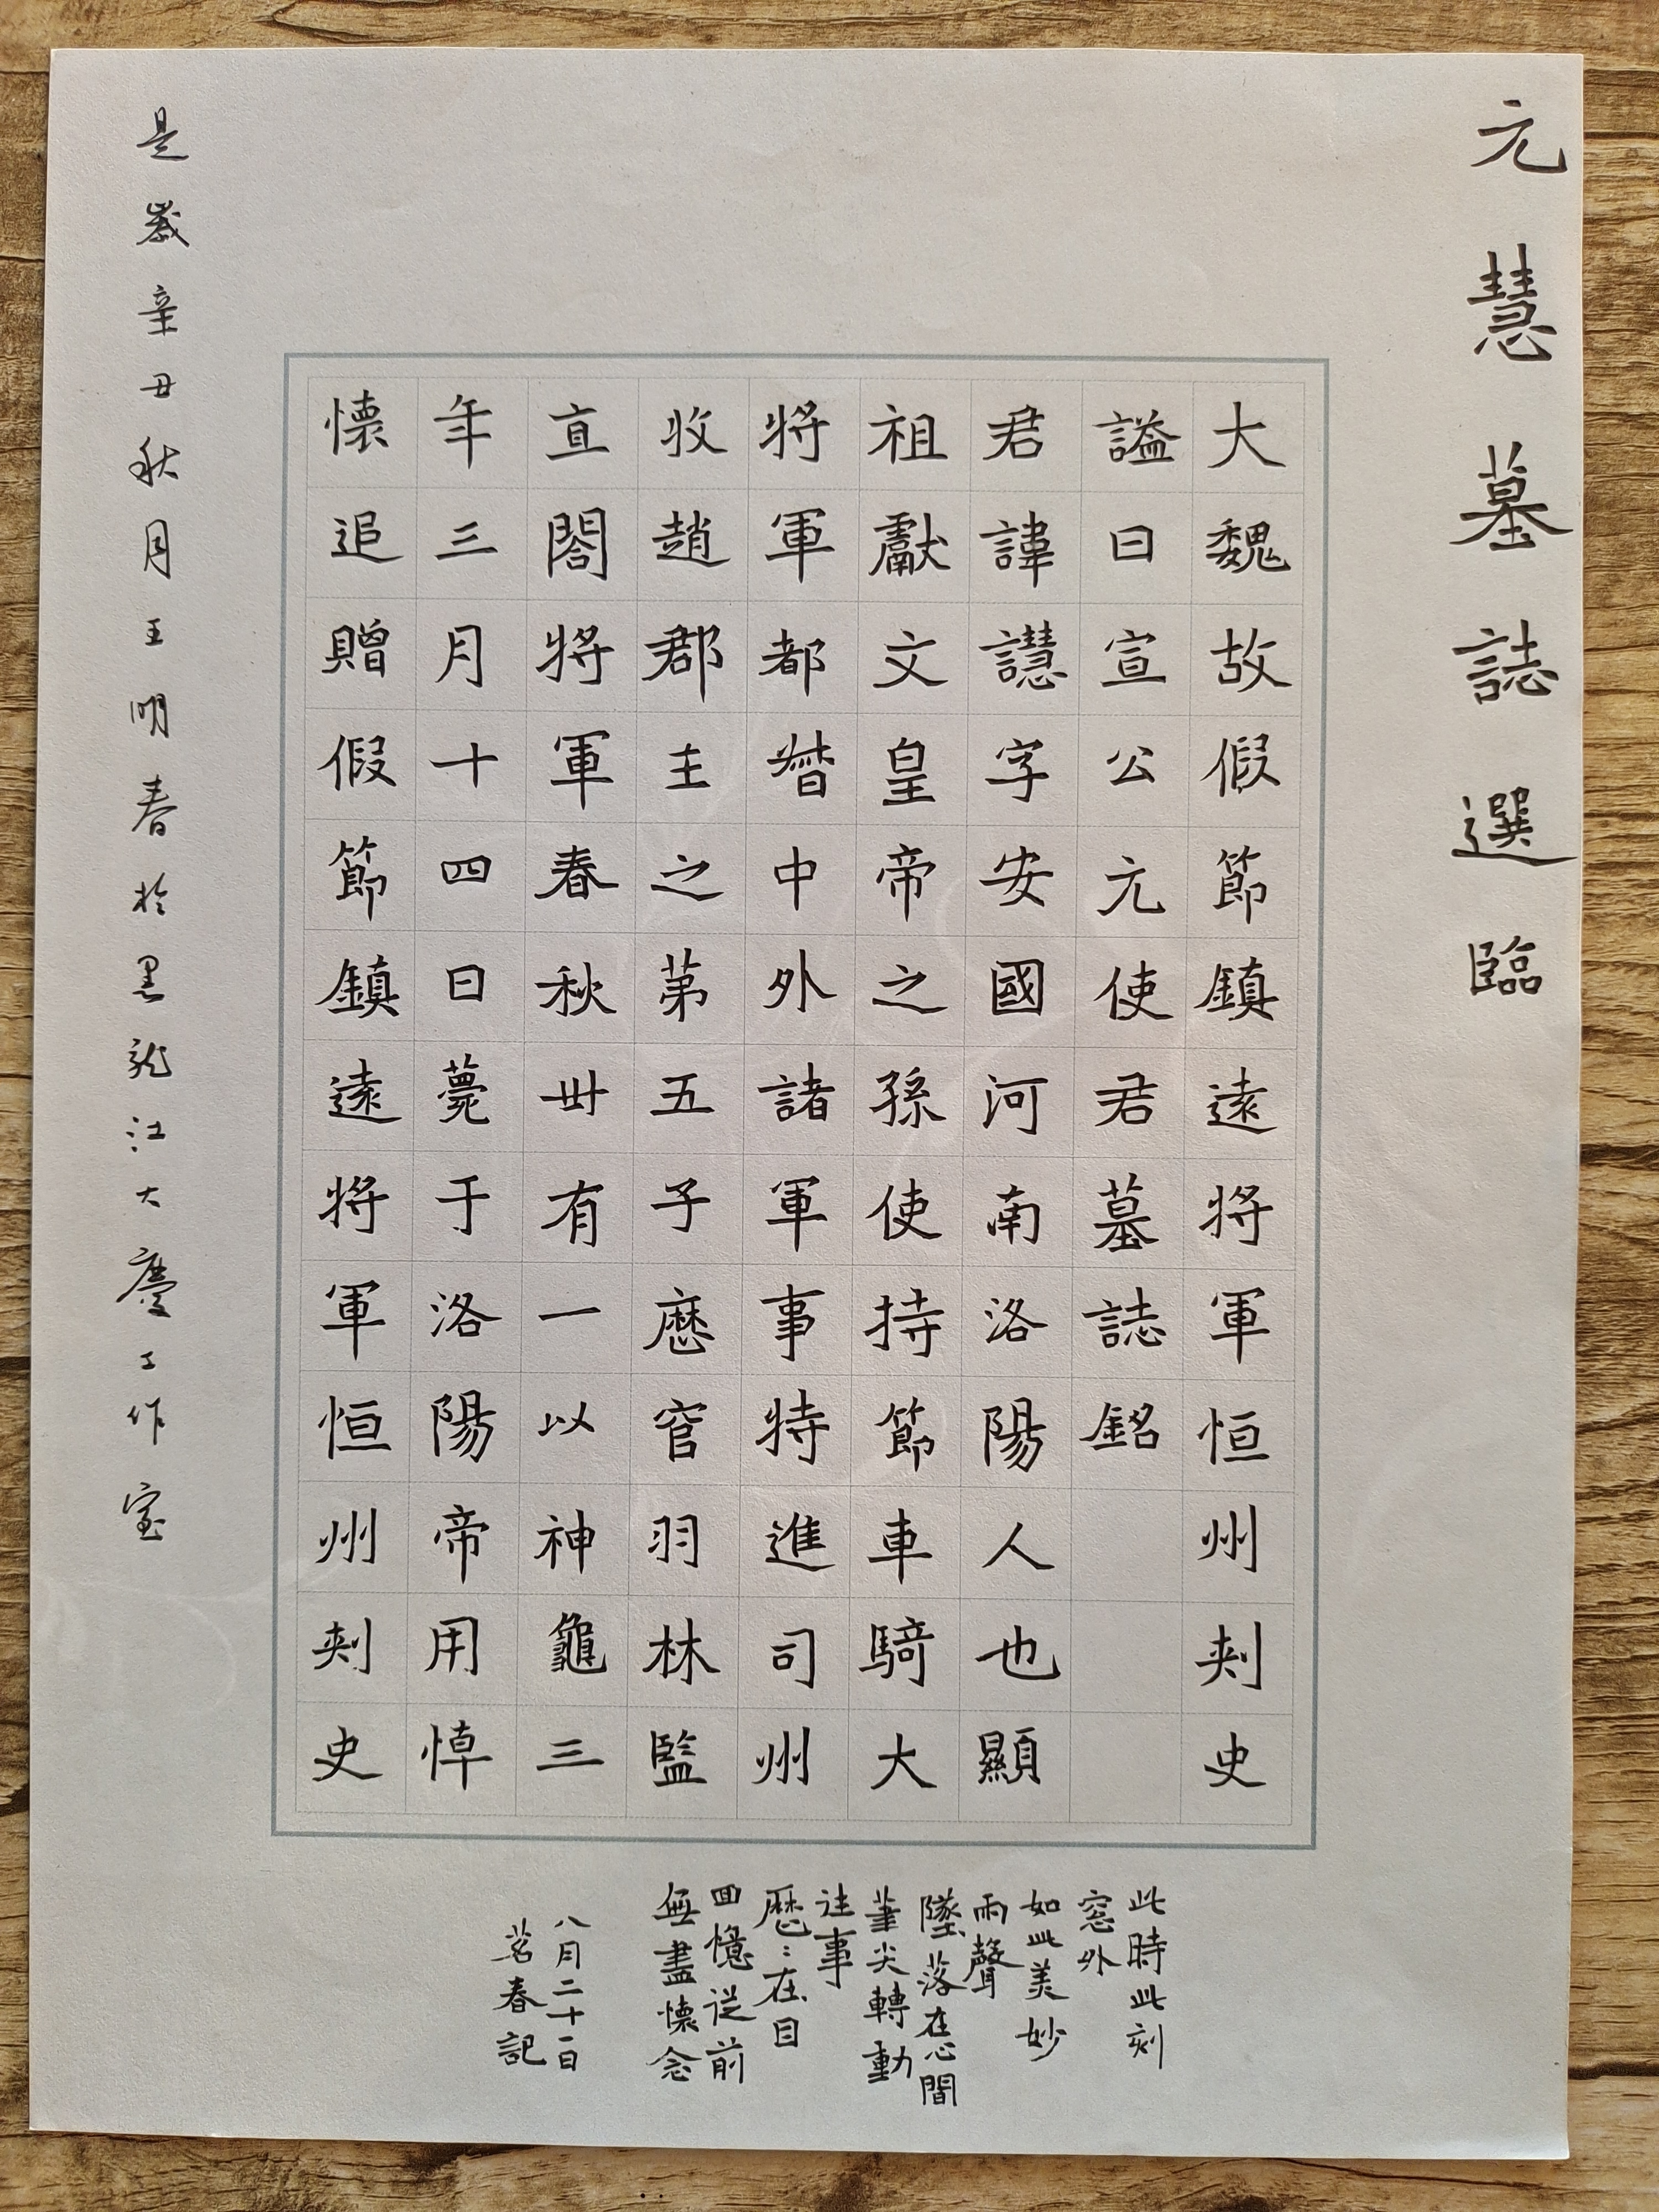 元慧墓誌選臨
大魏故假節鎮遠將軍恒州刾史
謚曰宣公元使君墓誌銘
君諱譿字安國河南洛陽人也顯
祖獻文皇帝之孫使持節車騎大
將軍都督中外諸軍事特進司州
牧趙郡王之第五子歷官羽林監
直閤將軍春秋卅有一以神龜三
年三月十四日薨于洛陽帝用悼
懷追贈假節鎮遠將軍恒州刾史
是歲辛丑秋月王明春於黑龍江大慶工作室
此時此刻
窓外
如此美妙
雨聲
墜落在心間
筆尖轉動
往事
歷:在目
回憶從前
無盡懷念
八月二十一日
茗春記